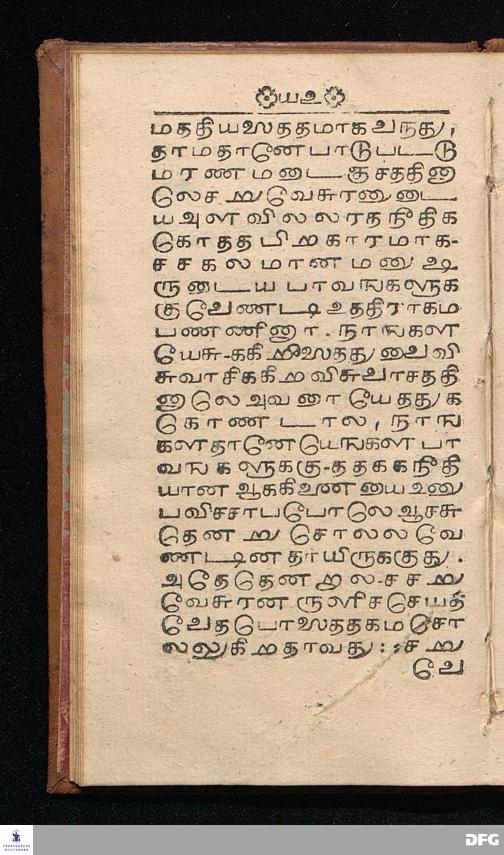 யஉ
மததியஸததமாக வநது,
தாமதானே பாடுபடடு
மரணமடைஞசததினு
லெச றுவேசுரனுடை
யஅளவிலலாதநீதிக
கொததபிறகாரமாக-
சசகலமானமனுஷ
ருடையபாவஙகளுக
குவேணடிஉததிராகம
பணணினா. நாஙகள
யேசு-ககிறிஸதது வைவி
சுவாசிககிறவிசுவாசததி
னுலெஅவனாயேததுக
கொணடால, நாங
களதானேயெஙகள பா
வஙகளுககு-ததககநீதி
யானஆககிணையைஉணு
பவிசசாபபோலெஆசசு
தெனறுசொலலவே
ணடினதாயிருககுது.
அதேதெனறல-சசறு
வேசுரனருளிசசெயத
வேதபொஸததகமசொ
லலுகிறதாவது: : சறு
வே
FRANCKESCHE STIFTUNGEN
DFG